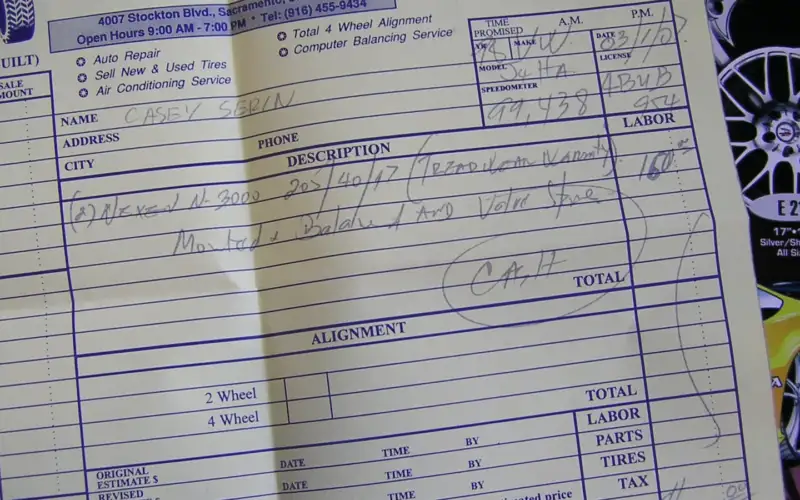 4007 Stockton Blvd., Sacramento,
Open Hours 9:00 AM - 7:00 PM • Tel: (916) 455-9434
Auto Repair
Sell New & Used Tires
Air Conditioning Service
Total 4 Wheel Alignment
Computer Balancing Service
UILT)
SALE
MOUNT
TIME PROMISED A.M. P.M.
MAKE V.W. DATE
MODEL LICENSE
SPEEDOMETER 99,438 4BUB 954
NAME CASEY SERIN
ADDRESS
CITY PHONE
DESCRIPTION LABOR
(2) NEXEN N-3000 205/40/17 160
AND Valve
CASH
TOTAL
ALIGNMENT
2 Wheel
4 Wheel
TOTAL
LABOR
PARTS
TIRES
TAX
ORIGINAL ESTIMATE $ DATE TIME BY
REVISED DATE TIME BY
DATE TIME BY
price
E 2
17"
Silver/
All Si